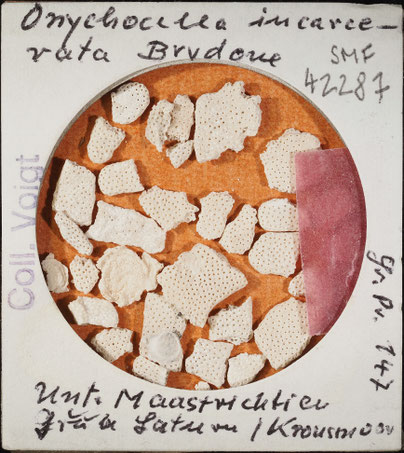 Onychocella incarce-
rata Brydone
SMF
42287
Coll. Voigt
Gr. Pr. 147
Unt. Maastrichtien
Grube Saturn / Kronsmoor